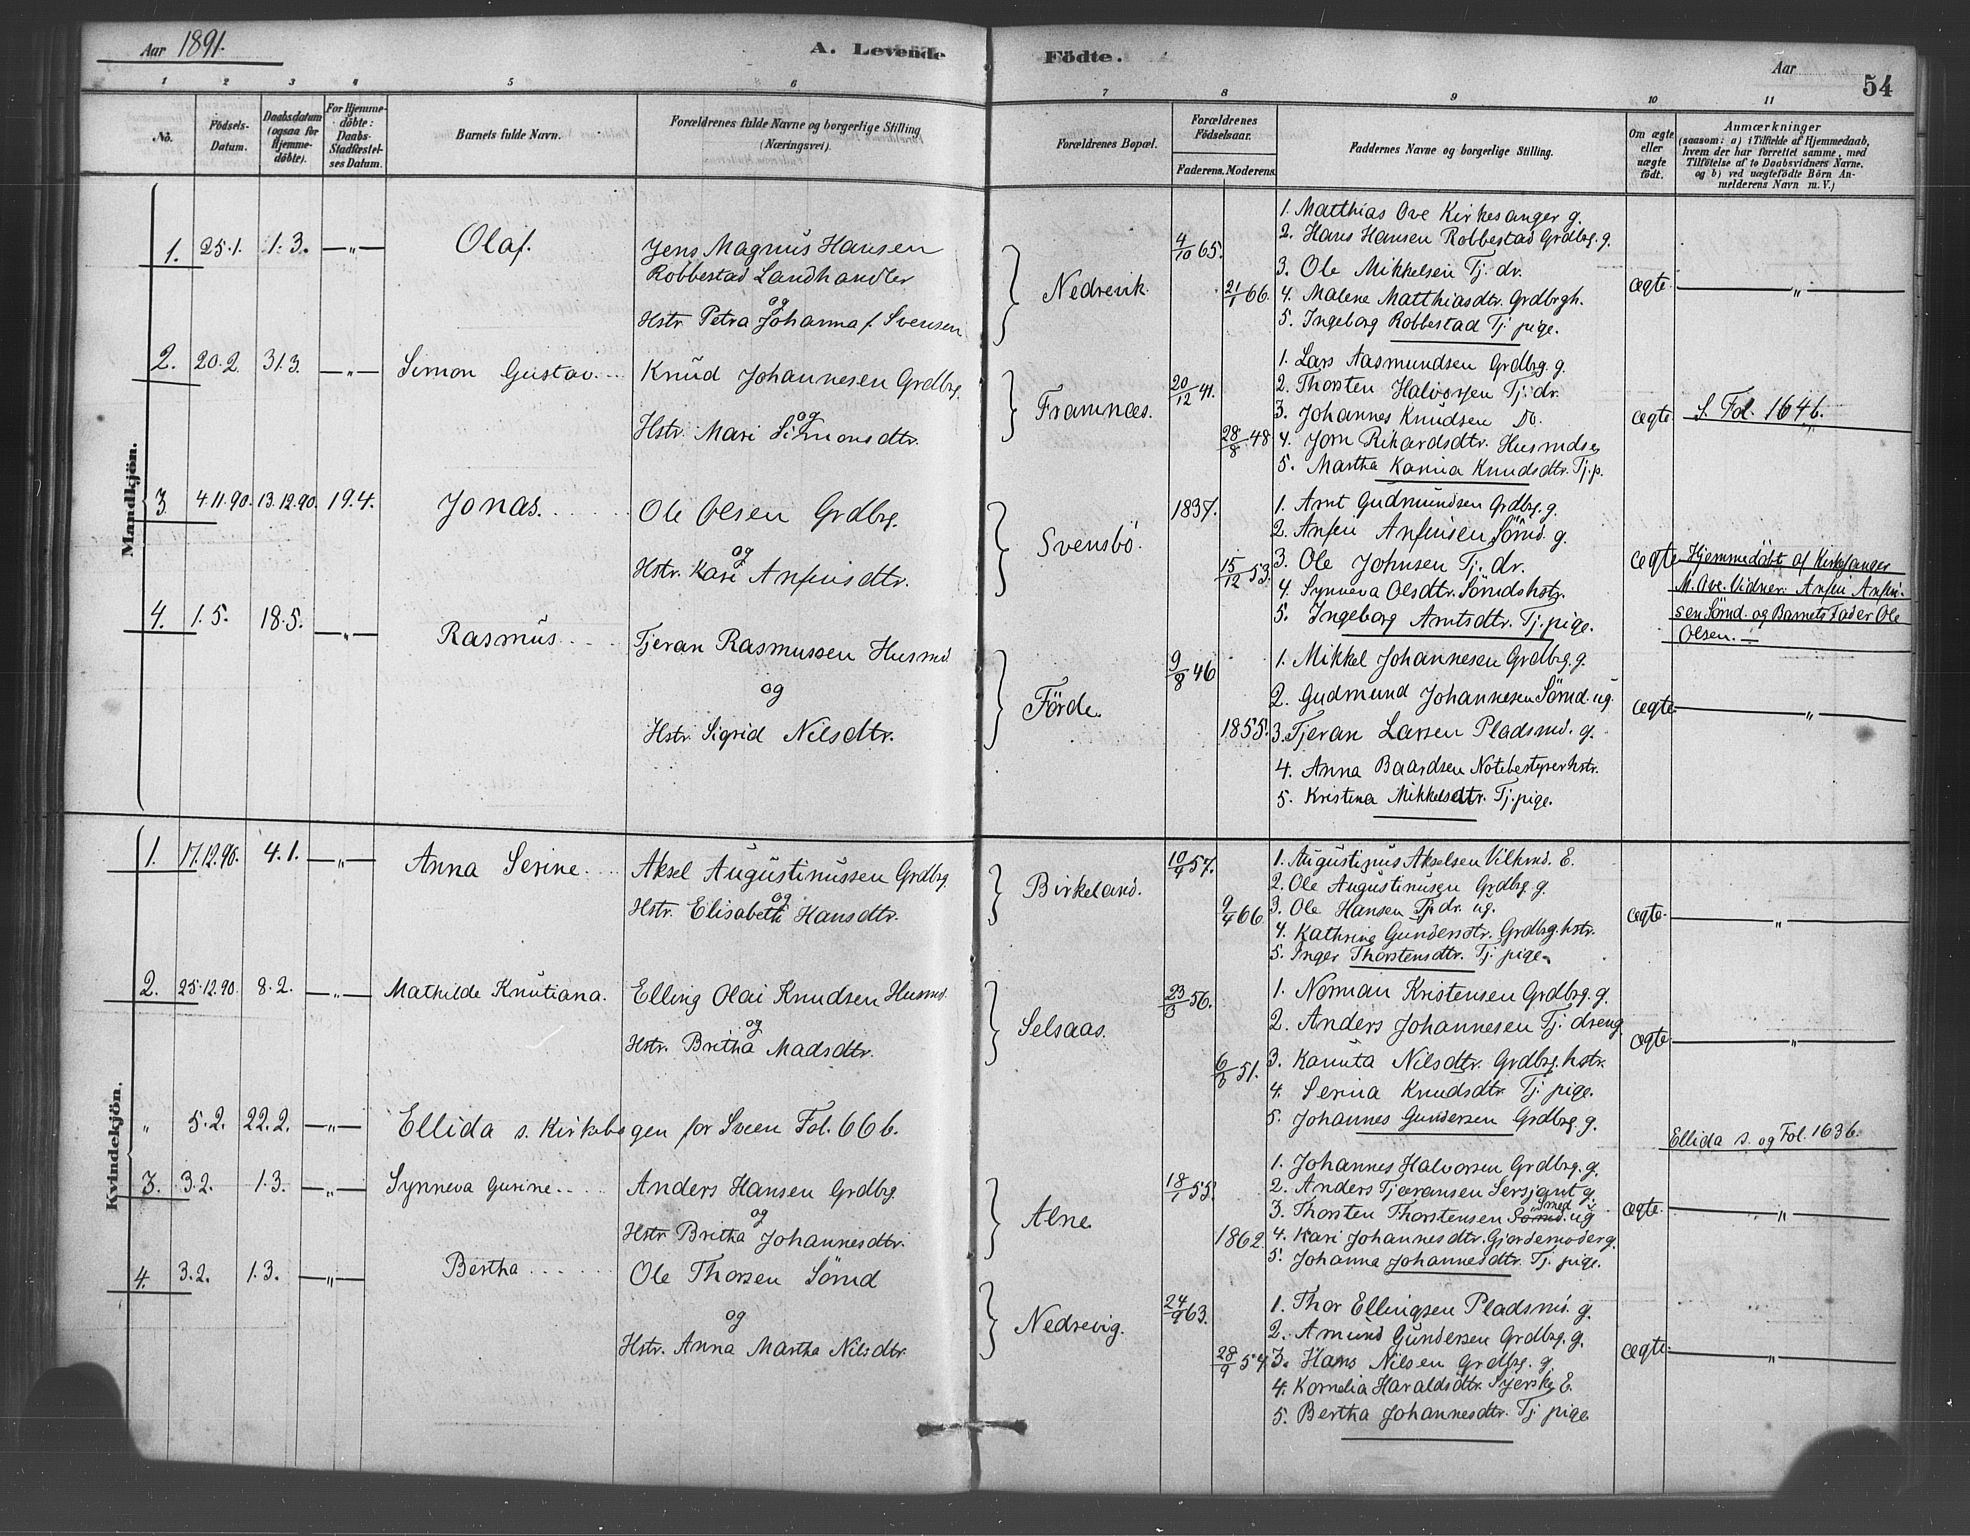 Aar 1891.
A. Levende Födte.
Aar
54
1 2 3 4 5 6 7 8 9 10 11
No.
Födsels-Datum.
Daabsdatum (ogsaa for Hjemme-döbte).
For Hjemme-döbte: Daabs-Stadfæstel-ses Datum.
Barnets fulde Navn.
Forældrenes fulde Navne og borgerlige Stilling (Næringsvei).
Forældrenes Bopæl.
Forældrenes Födselsaar.
Faderens. Moderens.
Faddernes Navne og borgerlige Stilling.
Om ægte eller uægte født.
Anmærkninger
(saasom: a) i Tilfælde af Hjemmedaab, hvem der har forrettet samme, med Tilföielse af to Daabsvidners Navne, og b) ved uægtefödte Börn An-melderens Navn m. V.)
Mandkjön.
1. 25.1. 1.3. —„— Olaf.
Jens Magnus Hansen
Robbestad Landhandler
og
Hstr. Petra Johanna f. Svensen
Nedrevik.
4/10 65.
21/1 66.
1. Matthias Ove Kirkesanger g.
2. Hans Hansen Robbestad Grdbrg. g.
3. Ole Mikkelsen Tj. dr.
4. Malene Matthiasdtr. Grdbrgh.
5. Ingeborg Robbestad Tj. pige.
ægte. —„—
2. 20.2. 31.3. —„— Simon Gustav.
Knud Johannesen Grdbrg.
og
Hstr. Mari Simonsdtr.
Framnæs.
20/12 41.
28/8 48
1. Lars Aasmundsen Grdbrg. g.
2. Thorsten Halvorsen Tj. dr.
3. Johannes Knudsen Do.
4. Jorn Rikardsdtr. Husmds
5. Martha Karina Knudsdtr. Tj. p.
ægte
S. Fol. 164 6.
3. 4.11.90. 13.12.90. 19.4. Jonas.
Ole Olsen Grdbrg.
og
Hstr. Kari Anfinsdtr.
Svensbö.
1837.
15/12 53.
1. Arnt Gudmundsen Grdbrg. g.
2. Anfin Anfinsen Sömd. g.
3. Ole Johnsen Tj. dr.
4. Synneva Olsdtr. Sömdshstr.
5. Ingeborg Arntsdtr. Tj. pige.
ægte
Hjemmedöbt af Kirkesanger
M. Ove. Vidner: Anfin Anfin-
sen Sömd. og Barnets Fader Ole
Olsen. —
4. 1.5. 18.5. —„— Rasmus.
Tjeran Rasmussen Husmd.
og
Hstr. Sigrid Nilsdtr.
Förde.
9/8 46
1855.
1. Mikkel Johannesen Grdbrg. g.
2. Gudmund Johannesen Sömd. ug.
3. Tjeran Larsen Pladsmd. g.
4. Anna Baardsen Notebestyrerhstr.
5. Kristina Mikkelsdtr. Tj. pige.
ægte. —„—
Kvindekjön.
1. 17.12.90. 4.1. —„— Anna Serine.
Aksel Augustinussen Grdbrg.
og
Hstr. Elisabeth Hansdtr.
Birkeland.
10/9 57.
9/4 66
1. Augustinus Akselsen Vilkmd. E.
2. Ole Augustinusen Grdbrg. g.
3. Ole Hansen Tj. dr. ug.
4. Kathrine Gundersdtr. Grdbrg. hstr.
5. Inger Thorstensdtr. Tj. pige.
ægte. —„—
2. 25.12.90. 8.2. —„— Mathilde Knutiana.
Elling Olai Knudsen Husmd.
og
Hstr. Britha Madsdtr.
Selsaas.
23/3 56.
6/6 51.
1. Norman Kristensen Grdbrg. g.
2. Anders Johannesen Tj. dreng
3. Kanuta Nilsdtr. Grdbrg. hstr.
4. Serina Knudsdtr. Tj. pige.
5. Johannes Gundersen Grdbrg. g.
ægte. —„—
„ 5.2. 22.2. —„— Ellida s. Kirkebogen for Sveen Fol. 66 6.
Ellida s. og Fol. 163 6.
3. 3.2. 1.3. —„— Synneva Gurine.
Anders Hansen Grdbrg
og
Hstr. Britha Johannesdtr.
Alne.
18/1 55.
1862.
1. Johannes Halvorsen Grdbrg. g.
2. Anders Tjæransen Sersjant g.
3. Thorsten Thorstensen Sömd. ug
4. Kari Johannesdtr. Gjordemoder g.
5. Johanna Johannesdtr. Tj. pige.
ægte. —„—
4. 3.2. 1.3. —„— Bertha
Ole Thorsen Sömd
og
Hstr. Anna Martha Nilsdtr.
Nedrevig.
24/9 63.
28/9 54.
1. Thor Ellingsen Pladsmd. g.
2. Amund Gundersen Grdbrg. g.
3. Hans Nilsen Grdbrg. g.
4. Kornelia Haraldsdtr. Syerske E.
5. Bertha Johannesdtr. Tj. pige
ægte. —„—